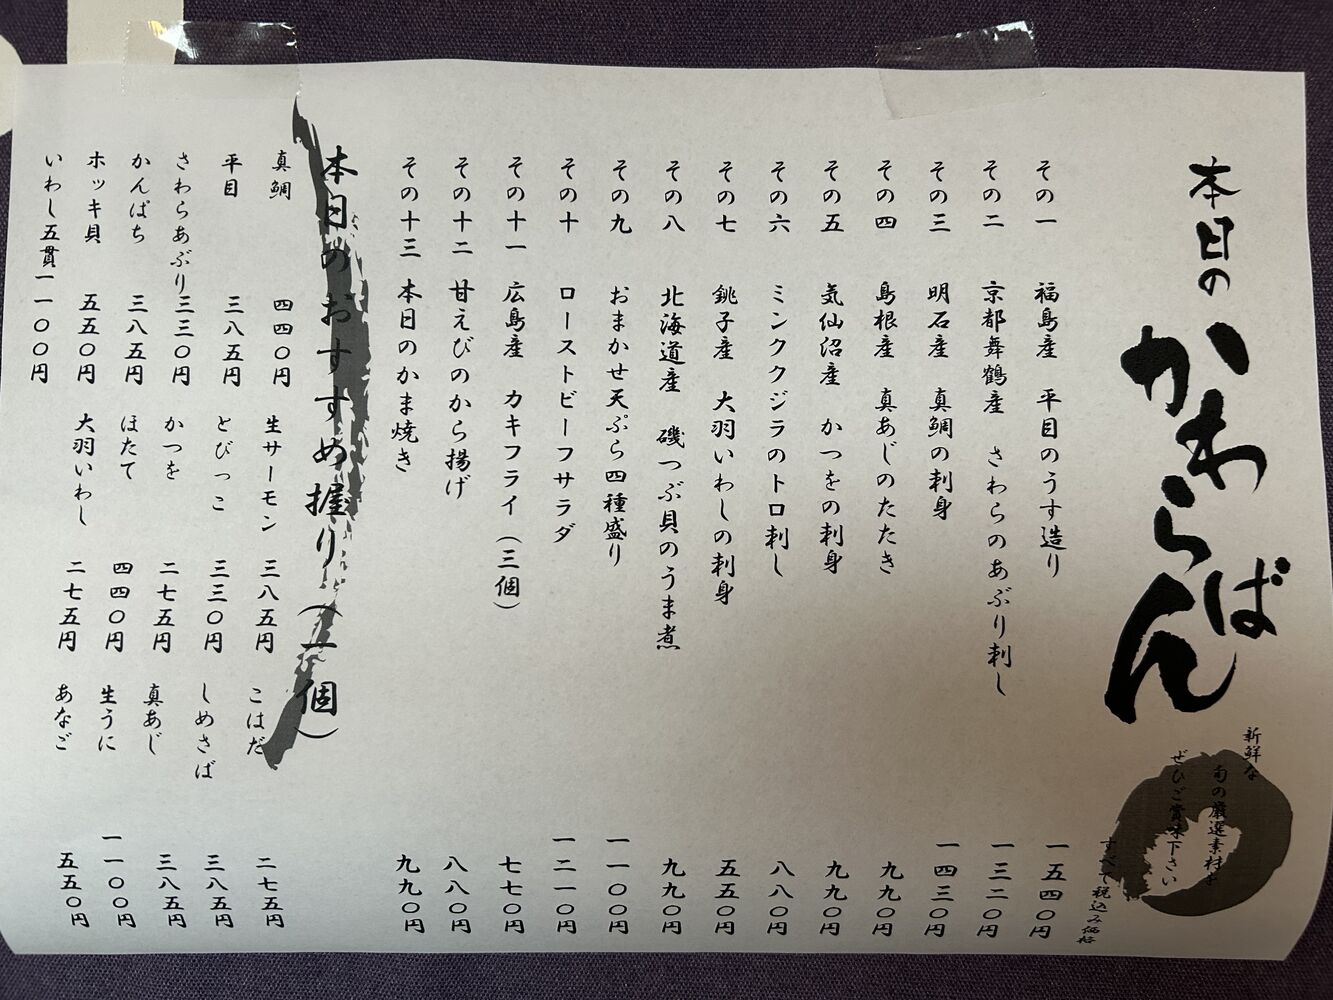 本日の かわらばん
新鮮な
旬の厳選素材を
ぜひご賞味下さい
すべて税込み価格
その一 福島産 平目のうす造り 一五四〇円
その二 京都舞鶴産 さわらのあぶり刺し 一三二〇円
その三 明石産 真鯛の刺身 一四三〇円
その四 島根産 真あじのたたき 九九〇円
その五 気仙沼産 かつをの刺身 九九〇円
その六 ミンククジラのトロ刺し 八八〇円
その七 銚子産 大羽いわしの刺身 五五〇円
その八 北海道産 磯つぶ貝のうま煮 九九〇円
その九 おまかせ天ぷら四種盛り 一一〇〇円
その十 ローストビーフサラダ 一二一〇円
その十一 広島産 カキフライ（三個） 七七〇円
その十二 甘えびのから揚げ 八八〇円
その十三 本日のかま焼き 九九〇円
本日のおすすめ握り（一個）
真鯛 四四〇円 生サーモン 三八五円 こはだ 二七五円
平目 三八五円 とびっこ 三三〇円 しめさば 三八五円
さわらあぶり 三三〇円 かつを 二七五円 真あじ 三八五円
かんぱち 三八五円 ほたて 四四〇円 生うに 一一〇〇円
ホッキ貝 五五〇円 大羽いわし 二七五円 あなご 五五〇円
いわし五貫 一一〇〇円